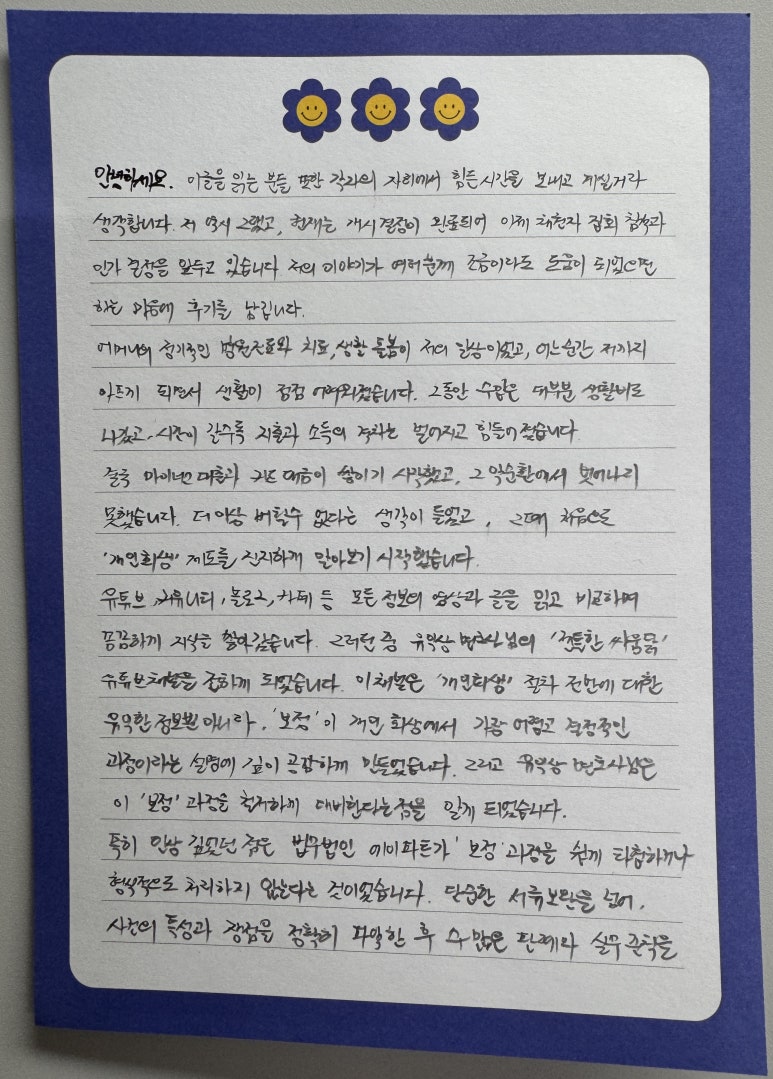 안녕하세요. 이글을 읽는 분들 또한 각자의 자리에서 힘든 시간을 보내고 계실거라
생각합니다. 저 역시 그랬고, 현재는 개시결정이 완료되어 이제 채권자 집회 참석과
인가 결정을 앞두고 있습니다 저의 이야기가 여러분께 조금이라도 도움이 되었으면
하는 마음에 후기를 남깁니다.
어머니의 정기적인 병원진료와 치료, 생활 돌봄이 저의 일상이었고, 어느순간 저까지
아프게 되면서 생활이 점점 어려워졌습니다. 그동안 수입은 대부분 생활비로
나갔고, 시간이 갈수록 지출과 소득의 격차는 벌어지고 힘들어졌습니다
결국 마이너스대출과 카드 대금이 쌓이기 시작했고, 그 악순환에서 벗어나지
못했습니다. 더이상 버틸수 없다는 생각이 들었고, 그때 처음으로
'개인회생' 제도를 진지하게 알아보기 시작했습니다.
유튜브, 커뮤니티, 블로그, 카페 등 모든 정보의 영상과 글을 읽고 비교하며
꼼꼼하게 지식을 쌓아갔습니다. 그러던 중 유악상 변호사님의 '전투한 싸움닭'
유튜브채널을 접하게 되었습니다. 이채널은 '개인회생' 절차 전반에 대한
유익한 정보뿐 아니라, '보정'이 개인 회생에서 가장 어렵고 결정적인
과정이라는 설명에 깊이 공감하게 만들었습니다. 그리고 유악상 변호사님은
이 '보정' 과정을 철저하게 대비한다는점을 알게 되었습니다.
특히 인상 깊었던 점은 법무법인 에이파트가 '보정' 과정을 쉽게 타협하거나
형식적으로 처리하지 않는다는 것이었습니다. 단순한 서류보완을 넘어,
사건의 특성과 쟁점을 정확히 파악한 후 수 많은 판례와 실무 관척을